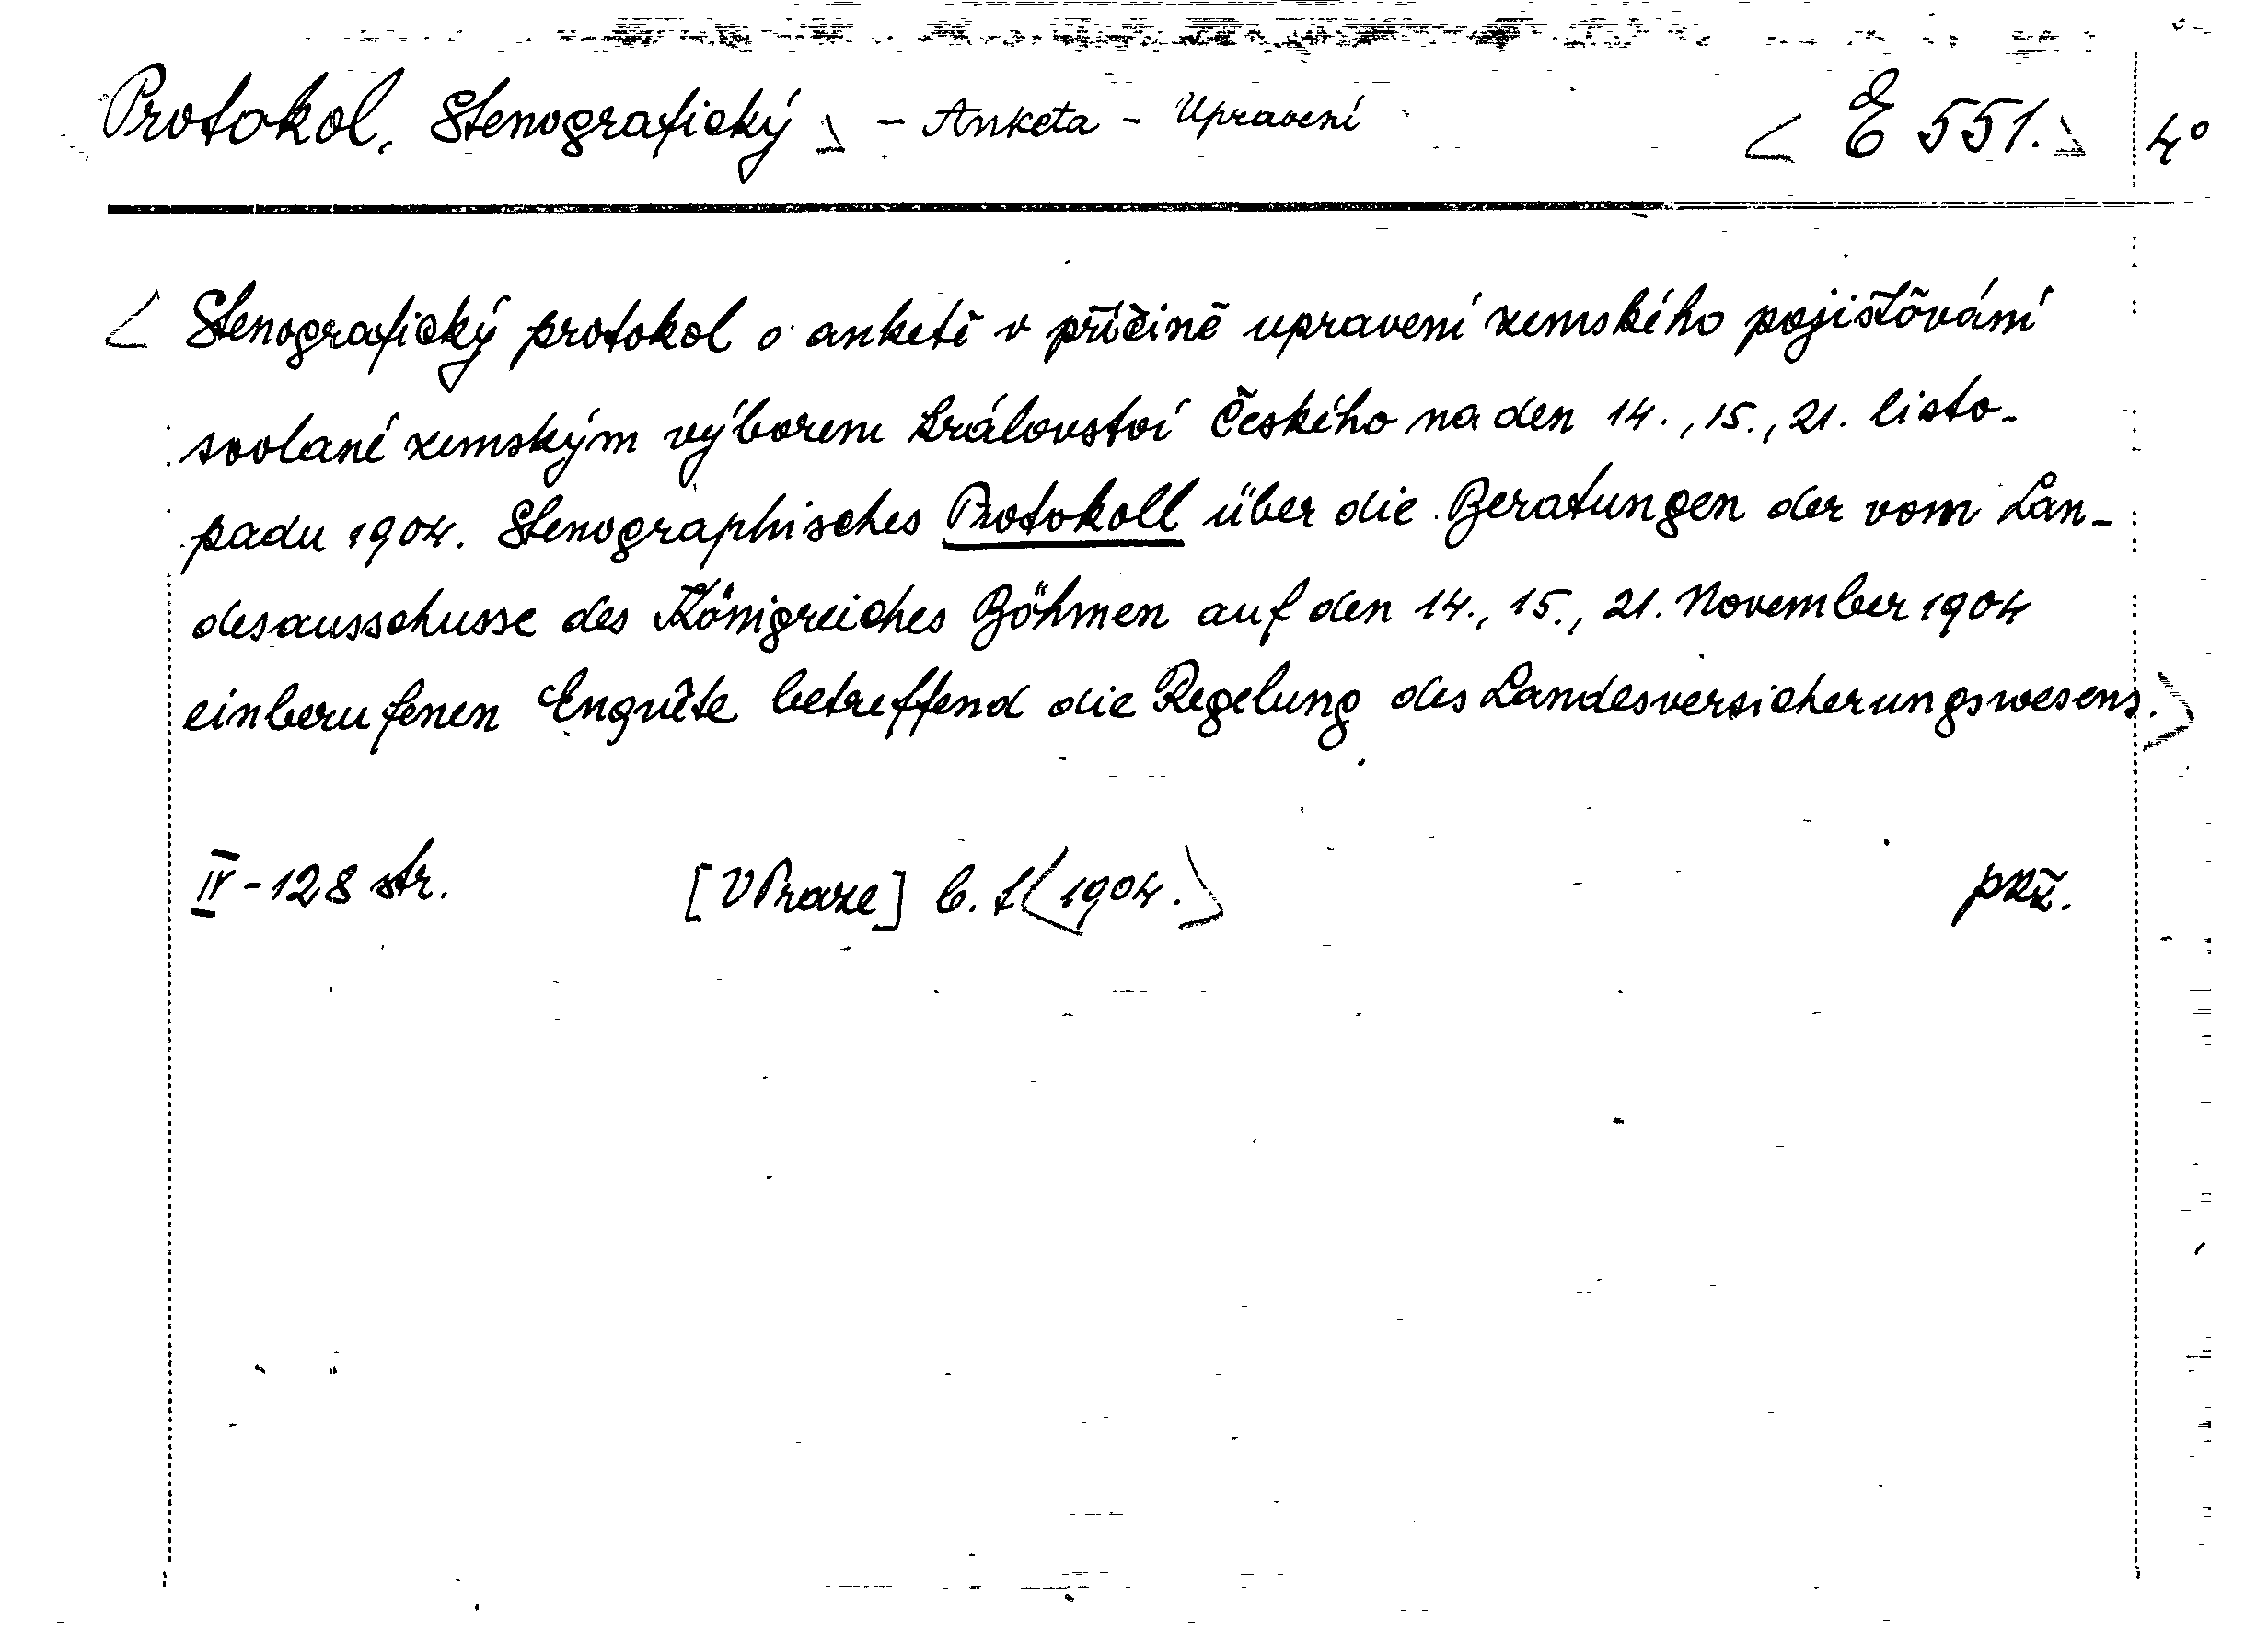 Protokol, Stenografický > - Anketa - Upravení < E 551. > 4°
< Stenografický protokol o anketě v příčině upravení zemského pojišťování
svolané zemským výborem království Českého na den 14., 15., 21. listo-
padu 1904. Stenographisches Protokoll über die Beratungen der vom Lan-
desausschusse des Königreiches Böhmen auf den 14., 15., 21. November 1904
einberufenen Enquête betreffend die Regelung des Landesversicherungswesens. >
IV - 128 str. [V Praze] b. t. < 1904. >